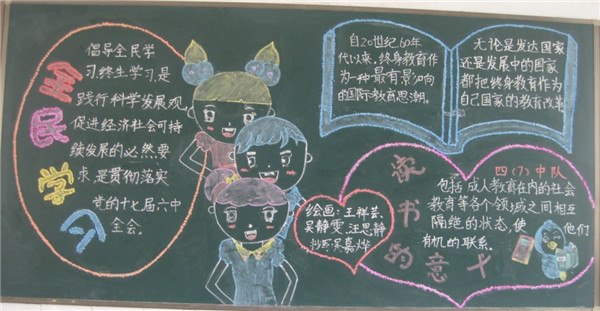 全民学习
倡导全民学
习终生学习,是
践行科学发展观,
促进经济社会可持
续发展的必然要
求,是贯彻落实
党的十七届六中
全会。
自20世纪60年
代以来,终身教育作
为一种最有影响
的国际教育思潮。
无论是发达国家
还是发展中的国家
都把终身教育作为
自己国家的教育改革
读书的意义
四(7)中队
包括成人教育在内的社会
教育等各个领域之间相互
隔绝的状态,使
他们
有机的联系。
绘画:王祥芸、
吴静雯、汪思静
抄写:吴嘉烨